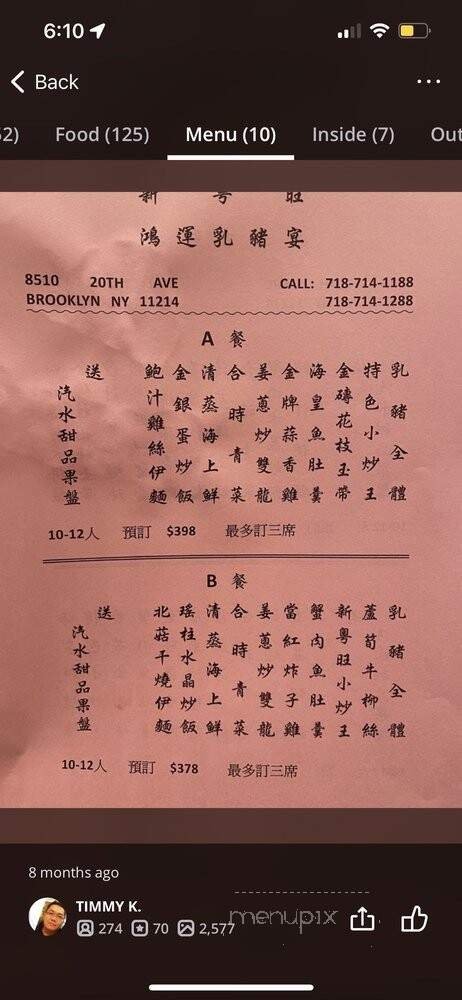 6:10
Back
52)
Food (125)
Menu (10)
Inside (7)
Out
新粵旺
鴻運乳豬宴
8510 20TH AVE
CALL: 718-714-1188
BROOKLYN NY 11214
718-714-1288
A 餐
乳豬全體
特色小炒王
金磚花枝玉帶
海皇魚肚羹
金牌蒜香雞
姜蔥炒雙龍
合時青菜
清蒸海上鮮
金銀蛋炒飯
鮑汁雞絲伊麵
送
汽水甜品果盤
10-12人 預訂 $398 最多訂三席
B 餐
乳豬全體
蘆筍牛柳絲
新粵旺小炒王
蟹肉魚肚羹
當紅炸子雞
姜蔥炒雙龍
合時青菜
清蒸海上鮮
瑤柱水晶炒飯
北菇干燒伊麵
送
汽水甜品果盤
10-12人 預訂 $378 最多訂三席
8 months ago
TIMMY K.
274 70 2,577
menupix